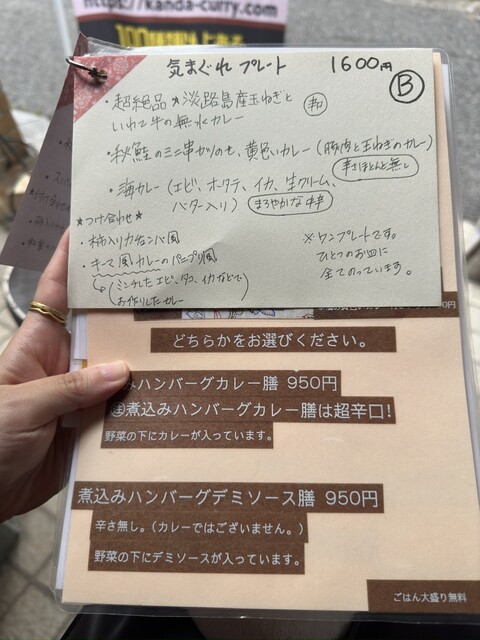 https://kanda-curry.com/
気まぐれプレート 1600円
B
・超絶品★淡路島産玉ねぎと
いわて牛の無水カレー 辛口
・秋鮭のミニ串かつのせ、黄色いカレー(豚肉と玉ねぎのカレー)
辛さほとんど無し
・海カレー(エビ、ホタテ、イカ、生クリーム、
バター入り) まろやかな中辛
★つけ合わせ★
・柿入りカチュンバ風
・キーマ風カレーのパニプリ風
(ミンチしたエビ、タコ、イカなどで
お作りしたカレー)
※ワンプレートです。
ひとつのお皿に
全てのっています。
どちらかをお選びください。
みハンバーグカレー膳 950円
煮込みハンバーグカレー膳は超辛口!
野菜の下にカレーが入っています。
煮込みハンバーグデミソース膳 950円
辛さ無し。(カレーではございません。)
野菜の下にデミソースが入っています。
ごはん大盛り無料